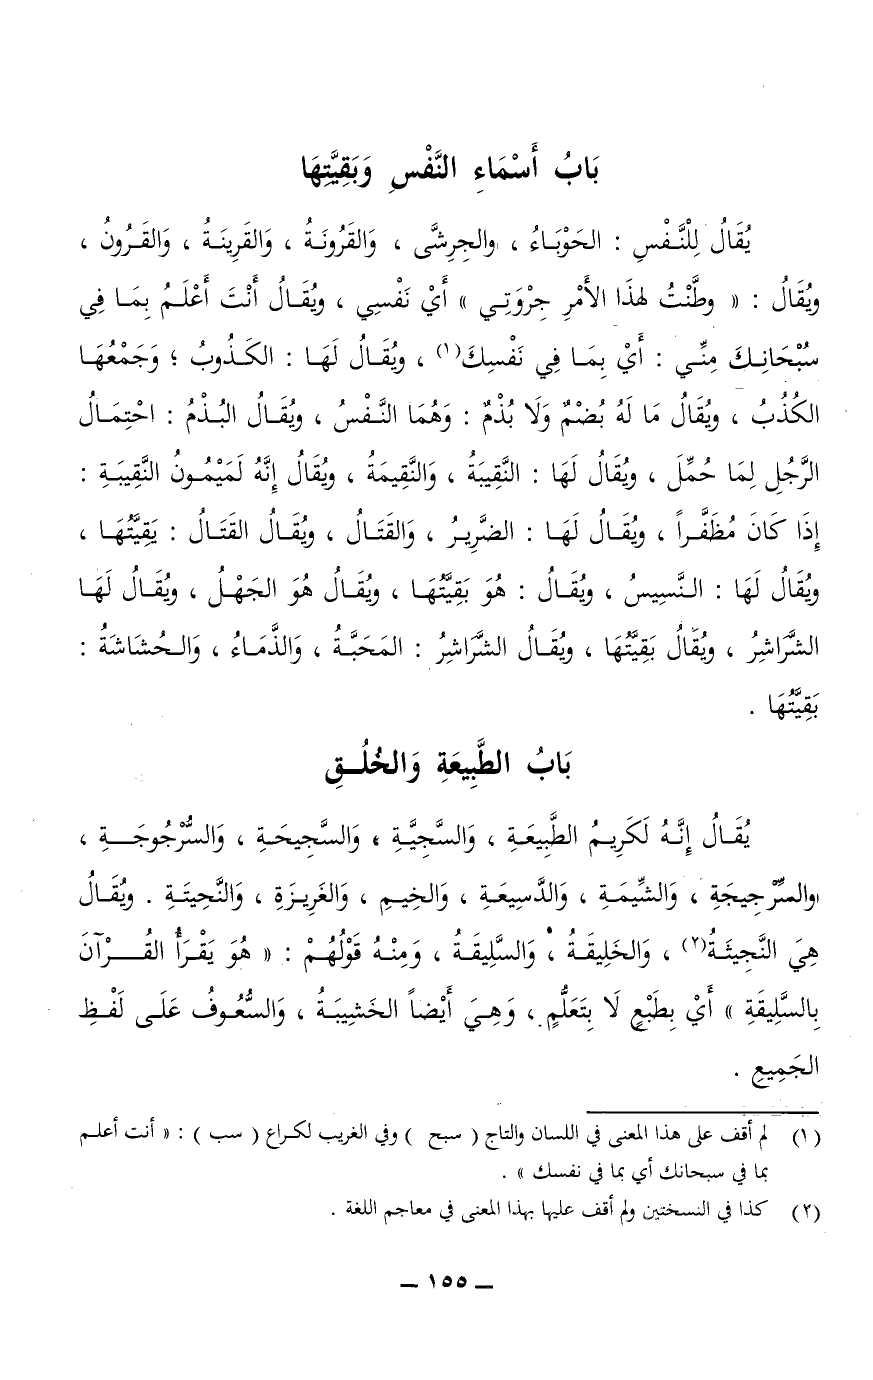 بَابُ أَسْمَاءِ النَّفْسِ وَبَقِيَّتِهَا
يُقَالُ لِلْنَّفْسِ : الحَوْبَاءُ ، والجِرِشَّى ، وَالقَرُونَةُ ، وَالقَرِينَةُ ، وَالقَرُونُ ،
ويُقَالُ : « وطَّنْتُ لهذَا الأَمْرِ جِرْوَتِي » أَيْ نَفْسِي ، ويُقَالُ أَنْتَ أَعْلَمُ بِمَا فِي
سُبْحَانِكَ مِنِّي : أَيْ بِمَا فِي نَفْسِكَ(١) ، ويُقَالُ لَهَا : الكَذُوبُ ؛ وَجَمْعُهَا
الكُذُبُ ، ويُقَالُ مَا لَهُ بُضْمٌ وَلَا بُذْمٌ : وَهُمَا النَّفْسُ ، ويُقَالُ البُذْمُ : احْتِمَالُ
الرَّجُلِ لِمَا حُمِّلَ ، ويُقَالُ لَهَا : النَّقِيبَةُ ، وَالنَّقِيمَةُ ، ويُقَالُ إِنَّهُ لَمَيْمُونُ النَّقِيبَةِ :
إِذَا كَانَ مُظَفَّراً ، ويُقَالُ لَهَا : الضَّرِيرُ ، وَالقَتَالُ ، ويُقَالُ القَتَالُ : بَقِيَّتُهَا ،
ويُقَالُ لَهَا : النَّسِيسُ ، ويُقَالُ : هُوَ بَقِيَّتُهَا ، ويُقَالُ هُوَ الجَهْلُ ، ويُقَالُ لَهَا
الشَّرَاشِرُ ، ويُقَالُ بَقِيَّتُهَا ، ويُقَالُ الشَّرَاشِرُ : المَحَبَّةُ ، وَالذَّمَاءُ ، وَالحُشَاشَةُ :
بَقِيَّتُهَا .
بَابُ الطَّبِيعَةِ وَالخُلُقِ
يُقَالُ إِنَّهُ لَكَرِيمُ الطَّبِيعَةِ ، وَالسَّجِيَّةِ ، وَالسَّجِيحَةِ ، وَالسُّرْجُوجَةِ ،
والسِّرْجِيجَةِ ، وَالشِّيمَةِ ، وَالدَّسِيعَةِ ، وَالخِيمِ ، وَالغَرِيزَةِ ، وَالنَّحِيتَةِ . ويُقَالُ
هِيَ النَّجِيثَةُ(٢) ، وَالخَلِيقَةُ ، وَالسَّلِيقَةُ ، وَمِنْهُ قَوْلُهُمْ : « هُوَ يَقْرَأُ القُرْآنَ
بِالسَّلِيقَةِ » أَيْ بِطَبْعٍ لَا بِتَعَلُّمٍ ، وَهِيَ أَيْضاً الخَشِيبَةُ ، وَالسُّعُوفُ عَلَى لَفْظِ
الجَمِيعِ .
(١) لم أقف على هذا المعنى في اللسان والتاج ( سبح ) وفي الغريب لكراع ( سب ) : « أنت أعلم
بما في سبحانك أي بما في نفسك » .
(٢) كذا في النسختين ولم أقف عليها بهذا المعنى في معاجم اللغة .
ــ ١٥٥ ــ